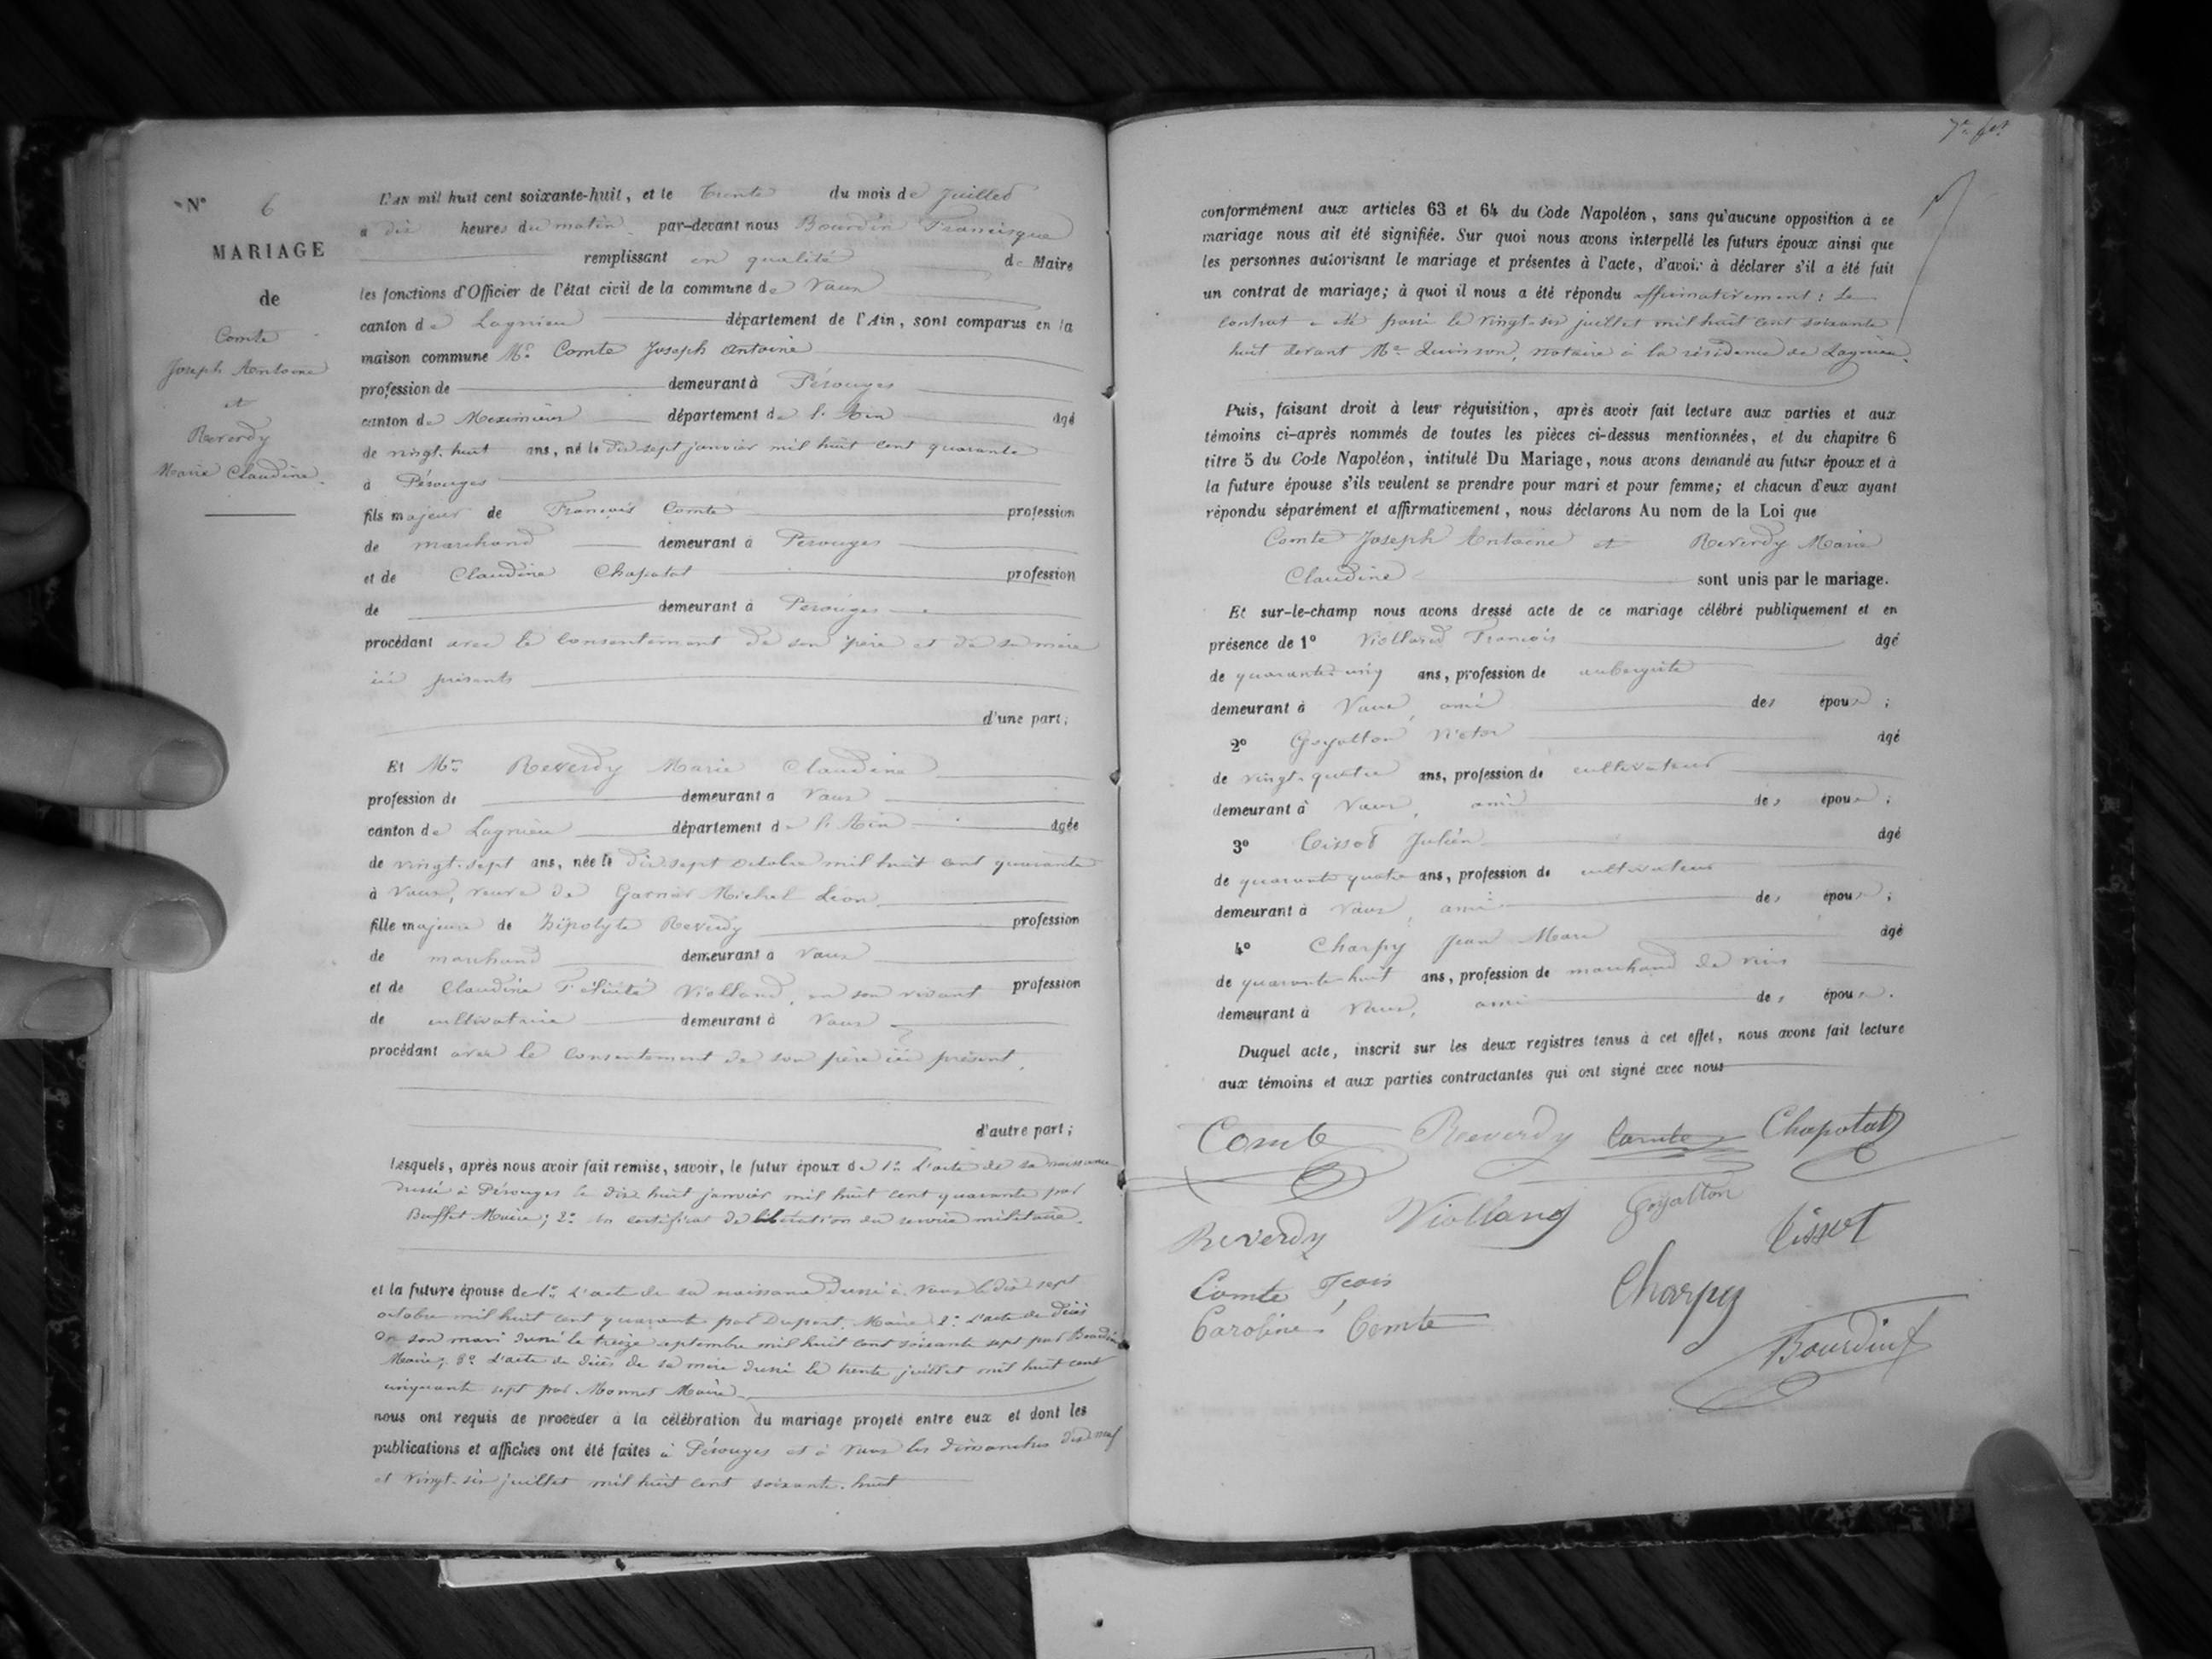 N° 6
MARIAGE
de
Comte
Joseph Antoine
et
Reverdy
Marie Claudine.
L'AN mil huit cent soixante-huit, et le trente du mois de juillet
à dix heures du matin par-devant nous Bourdin Francisque
remplissant en qualité de Maire
les fonctions d'Officier de l'état civil de la commune de Vaux
canton de Lagnieu département de l'Ain, sont comparus en la
maison commune Mr Comte Joseph Antoine
profession de demeurant à Pérouges
canton de Meximieux département de l'Ain âgé
de vingt-huit ans, né le dix sept janvier mil huit cent quarante
à Pérouges
fils majeur de François Comte profession
de marchand demeurant à Pérouges
et de Claudine Chapotat profession
de demeurant à Pérouges
procédant avec le consentement de son père et de sa mère
ici présents
d'une part;
Et Me Reverdy Marie Claudine
profession de demeurant à Vaux
canton de Lagnieu département de l'Ain âgée
de vingt-sept ans, née le dix sept octobre mil huit cent quarante
à Vaux, veuve de Garnier Michel Léon
fille majeure de Hipolyte Reverdy profession
de marchand demeurant à Vaux
et de Claudine Félicité Violland, en son vivant profession
de cultivatrice demeurant à Vaux
procédant avec le consentement de son père ici présent.
d'autre part;
Lesquels, après nous avoir fait remise, savoir, le futur époux de 1° L'acte de sa naissance
dressé à Pérouges le dix huit janvier mil huit cent quarante par
Buffet Maire; 2° un certificat de libération du service militaire.
et la future épouse de 1° L'acte de sa naissance dressé à Vaux le dix sept
octobre mil huit cent quarante par Dupont, Maire 2° L'acte de décès
de son mari dressé le treize septembre mil huit cent soixante sept par Bourdin
Maire; 3° L'acte de décès de sa mère dressé le trente juillet mil huit cent
cinquante sept par Monnet Maire
nous ont requis de procéder à la célébration du mariage projeté entre eux et dont les
publications et affiches ont été faites à Pérouges et à Vaux les dimanches dix neuf
et vingt-six juillet mil huit cent soixante-huit
7e
conformément aux articles 63 et 64 du Code Napoléon, sans qu'aucune opposition à ce
mariage nous ait été signifiée. Sur quoi nous avons interpellé les futurs époux ainsi que
les personnes autorisant le mariage et présentes à l'acte, d'avoir à déclarer s'il a été fait
un contrat de mariage; à quoi il nous a été répondu affirmativement: Le
contrat a été passé le vingt-six juillet mil huit cent soixante
huit devant Me Quinson, notaire à la résidence de Lagnieu.
Puis, faisant droit à leur réquisition, après avoir fait lecture aux parties et aux
témoins ci-après nommés de toutes les pièces ci-dessus mentionnées, et du chapitre 6
titre 5 du Code Napoléon, intitulé Du Mariage, nous avons demandé au futur époux et à
la future épouse s'ils veulent se prendre pour mari et pour femme; et chacun d'eux ayant
répondu séparément et affirmativement, nous déclarons Au nom de la Loi que
Comte Joseph Antoine et Reverdy Marie
Claudine sont unis par le mariage.
Et sur-le-champ nous avons dressé acte de ce mariage célébré publiquement et en
présence de 1° Violland François âgé
de quarante-cinq ans, profession de aubergiste
demeurant à Vaux, ami des époux;
2° Goyatton Victor âgé
de vingt-quatre ans, profession de cultivateur
demeurant à Vaux, ami des époux;
3° Tissot Julien âgé
de quarante quatre ans, profession de cultivateur
demeurant à Vaux, ami des époux;
4° Charpy Jean Marc âgé
de quarante huit ans, profession de marchand de vins
demeurant à Vaux, ami des époux.
Duquel acte, inscrit sur les deux registres tenus à cet effet, nous avons fait lecture
aux témoins et aux parties contractantes qui ont signé avec nous
Comte Reverdy Comte Chapotat
Reverdy Violland Goyatton Tissot
Comte Fcois Charpy
Caroline Comte Bourdin